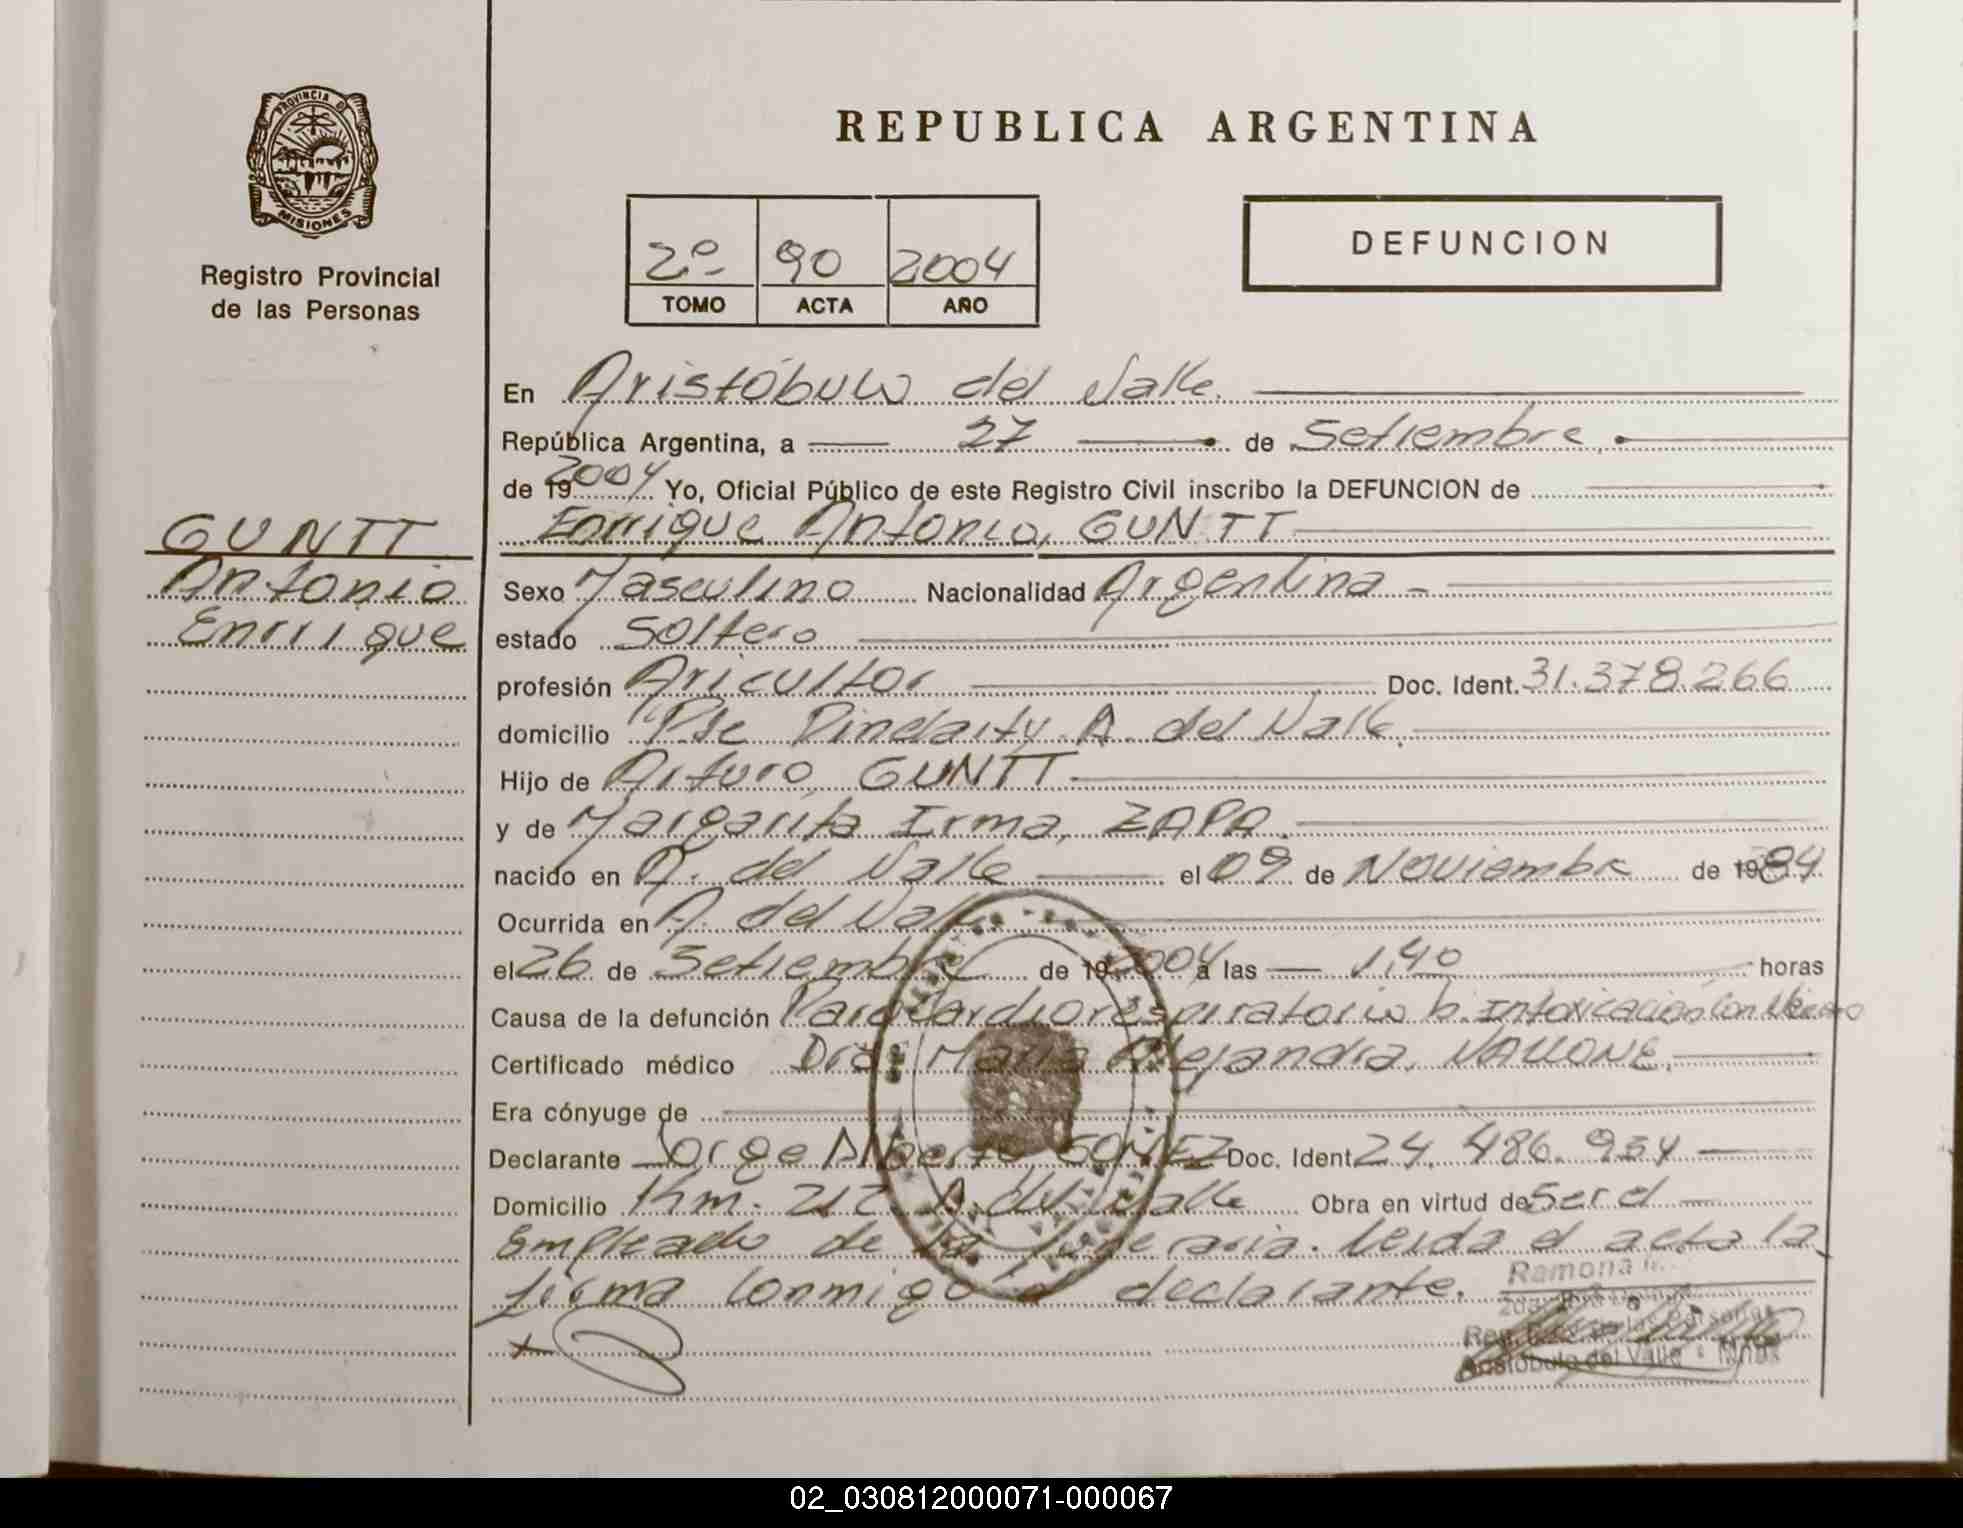 PROVINCIA D
MISIONES
Registro Provincial
de las Personas
REPUBLICA ARGENTINA
2º 90 2004
TOMO ACTA AÑO
DEFUNCION
En Aristóbulo del Valle.
República Argentina, a 27 de Setiembre.
de 19 2004 Yo, Oficial Público de este Registro Civil inscribo la DEFUNCION de
Enrrique Antonio, GUNTT
GUNTT
Antonio
Enrrique
Sexo Masculino Nacionalidad Argentina -
estado Soltero
profesión Aricultor Doc. Ident. 31.378.266
domicilio Pje Dindaity A. del Valle.
Hijo de Arturo, GUNTT
y de Margarita Irma, ZAPA.
nacido en A. del Valle el 09 de Noviembre de 1984
Ocurrida en A. del Valle
el 26 de Setiembre de 19 2004 a las 1,40 horas
Causa de la defunción Paro Cardiorespiratorio b. Intoxicación Con
Certificado médico Dra: Maria Alejandra, NALLONE.
Era cónyuge de
Declarante Jorge Alberto GOMEZ Doc. Ident. 24.486.934
Domicilio Km. 212 A. del Valle Obra en virtud de Ser el
Empleado de la Funeraria. Leida el acta la
firma Conmigo el declarante.
Ramona
Reg. de las Personas
Aristóbulo del Valle - Mnes
02_030812000071-000067